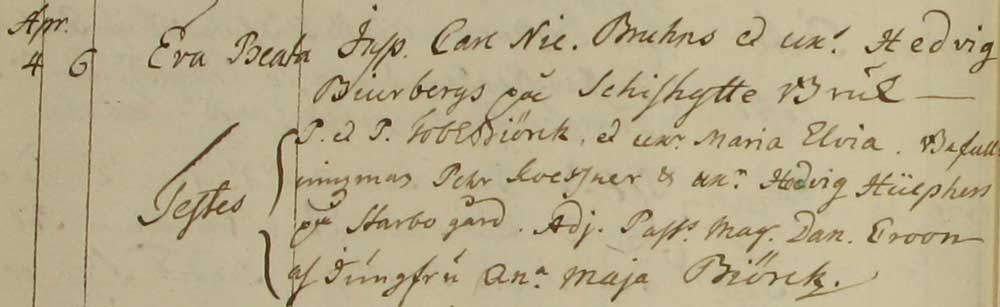 Apr.
4 6 Eva Beata Insp. Carl Nic. Bruhns et ux.r Hedvig
Biurbergs på Schisshytte Bruk —
P. et P. Tob. Biörck, et uxr Maria Elvia. Befull
ningsman Pehr & uxr Hedvig Hülphers
Testes
på Starbo gård. Adj. Past. Mag. Dan.
af Jungfru Ana Maja Biörck.